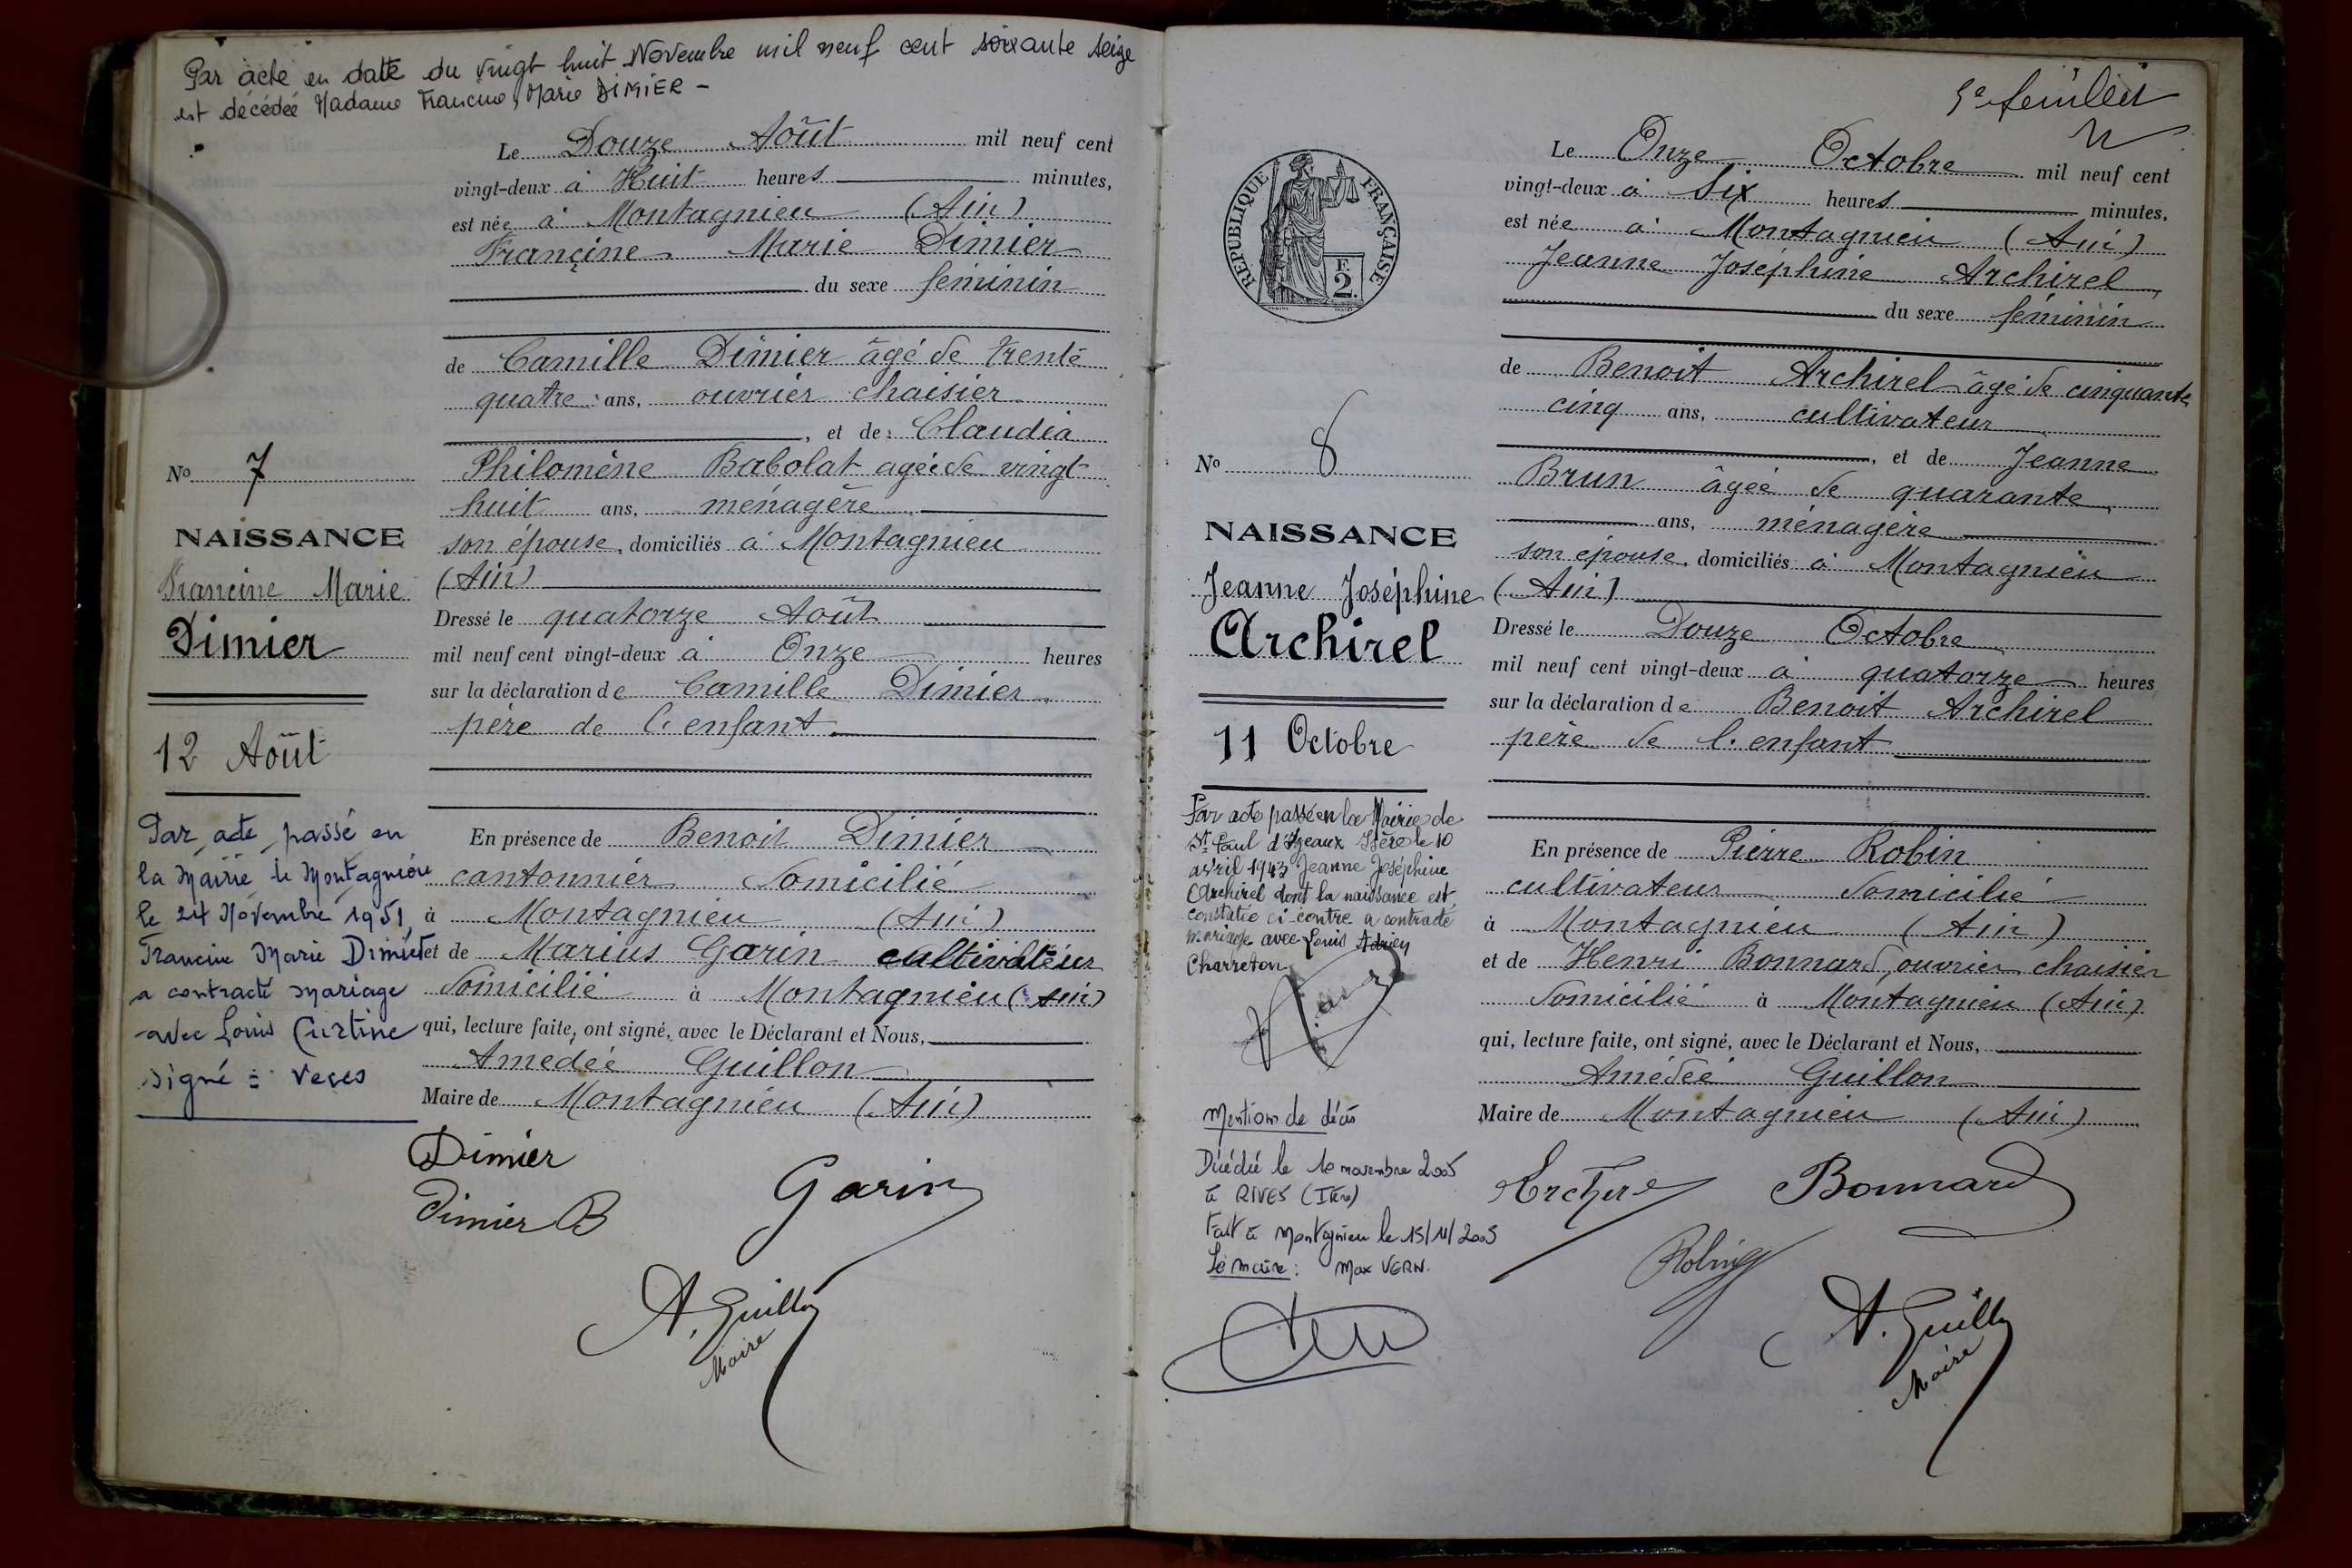 Par acte en datte du vingt huit Novembre mil neuf cent soixante seize
est décédée Madame Francine, Marie DIMIER -
Le Douze Août mil neuf cent
vingt-deux à Huit heures minutes,
est née à Montagnieu (Ain)
Françine Marie Dimier
du sexe féminin
de Camille Dimier âgé de trente
quatre ans, ouvrier chaisier
, et de Claudia
Philomène Babolat agée de vingt
huit ans, ménagère
son épouse, domiciliés à Montagnieu
(Ain)
Dressé le quatorze Août
mil neuf cent vingt-deux à Onze heures
sur la déclaration de Camille Dimier
père de l'enfant
En présence de Benoit Dimier
cantonnier domicilié
à Montagnieu (Ain)
et de Marius Garin cultivateur
domicilié à Montagnieu (Ain)
qui, lecture faite, ont signé, avec le Déclarant et Nous,
Amedée Guillon
Maire de Montagnieu (Ain)
Dimier
Dimier B
Garin
A. Guillon
Maire
No 7
NAISSANCE
Francine Marie
Dimier
12 Août
Par acte passé en
la Mairie de Montagnieu
le 24 Novembre 1951,
Francine Marie Dimier
a contracté mariage
avec Louis Curtine
signé : Veses
5e feuillet
REPUBLIQUE FRANÇAISE
2F.
Le Onze Octobre mil neuf cent
vingt-deux à Six heures minutes,
est née à Montagnieu (Ain)
Jeanne Joséphine Archirel
du sexe féminin
de Benoit Archirel âgé de cinquante
cinq ans, cultivateur
, et de Jeanne
Brun âgée de quarante
ans, ménagère
son épouse, domiciliés à Montagnieu
(Ain)
Dressé le Douze Octobre
mil neuf cent vingt-deux à quatorze heures
sur la déclaration de Benoit Archirel
père de l'enfant
En présence de Pierre Robin
cultivateur domicilié
à Montagnieu (Ain)
et de Henri Bonnard, ouvrier chaisier
domicilié à Montagnieu (Ain)
qui, lecture faite, ont signé, avec le Déclarant et Nous,
Amédée Guillon
Maire de Montagnieu (Ain)
Archirel
Bonnard
Robin
A. Guillon
Maire
No 8
NAISSANCE
Jeanne Joséphine
Archirel
11 Octobre
Par acte passé en la Mairie de
St Paul d'Izeaux Isère le 10
avril 1943 Jeanne Joséphine
Archirel dont la naissance est
constatée ci-contre a contracté
mariage avec Louis Adrien
Charreton
Mention de décès
Décédé le 10 novembre 2005
à RIVES (Isère)
Fait à Montagnieu le 15/11/2005
Le maire : Max VERN.